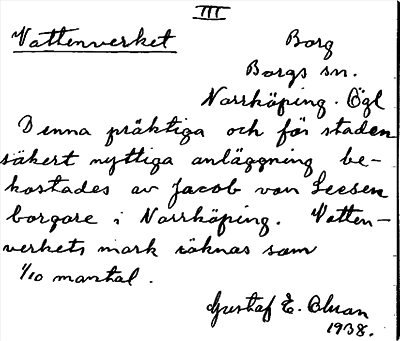 III
Vattenverket Borg
Borgs sn.
Norrköping. Ögl
Denna präktiga och för staden
säkert nyttiga anläggning be-
kostades av Jacob von Leesen
borgare i Norrköping. Vatten-
verkets mark räknas som
1/10 mantal.
Gustaf E.
1938.